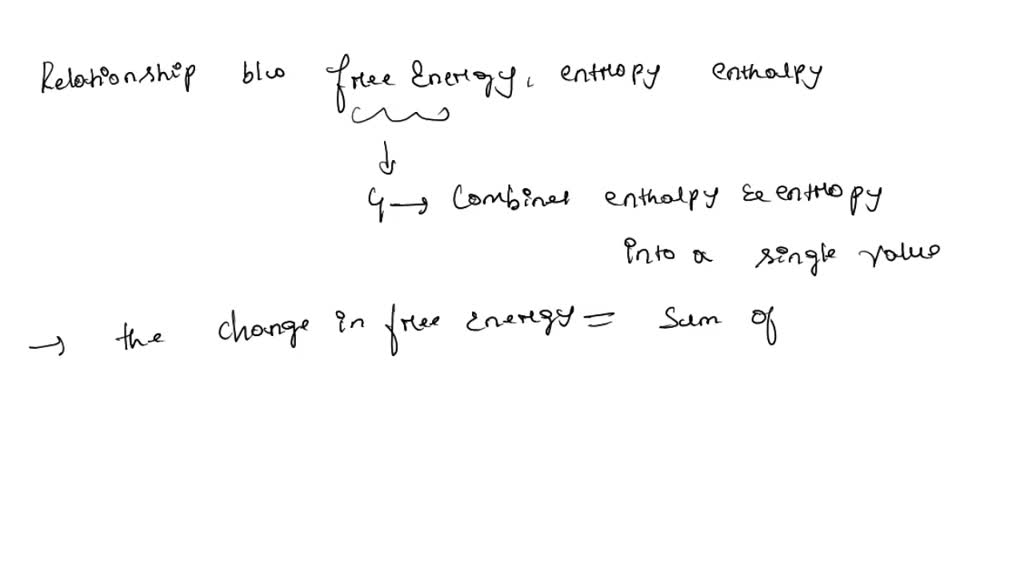 Relationship b/w free Energy, entropy enthalpy
G → Combines enthalpy & entropy
into a single value
→ the change in free energy = Sum of